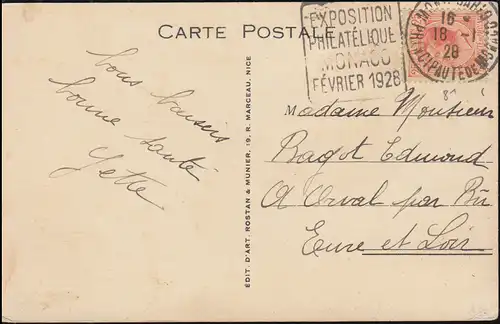 CARTE POSTALE
EXPOSITION
PHILATÉLIQUE
MONACO
FÉVRIER 1928
16 *
18 -1
28
PRINCIPAUTÉ DE MONACO
Bons baisers
bonne santé
Yette
ÉDIT. D'ART. ROSTAN & MUNIER, 19, R. MARCEAU, NICE
Madame Monsieur
Bagot Edmond
A Orval par Bû
Eure et Loir